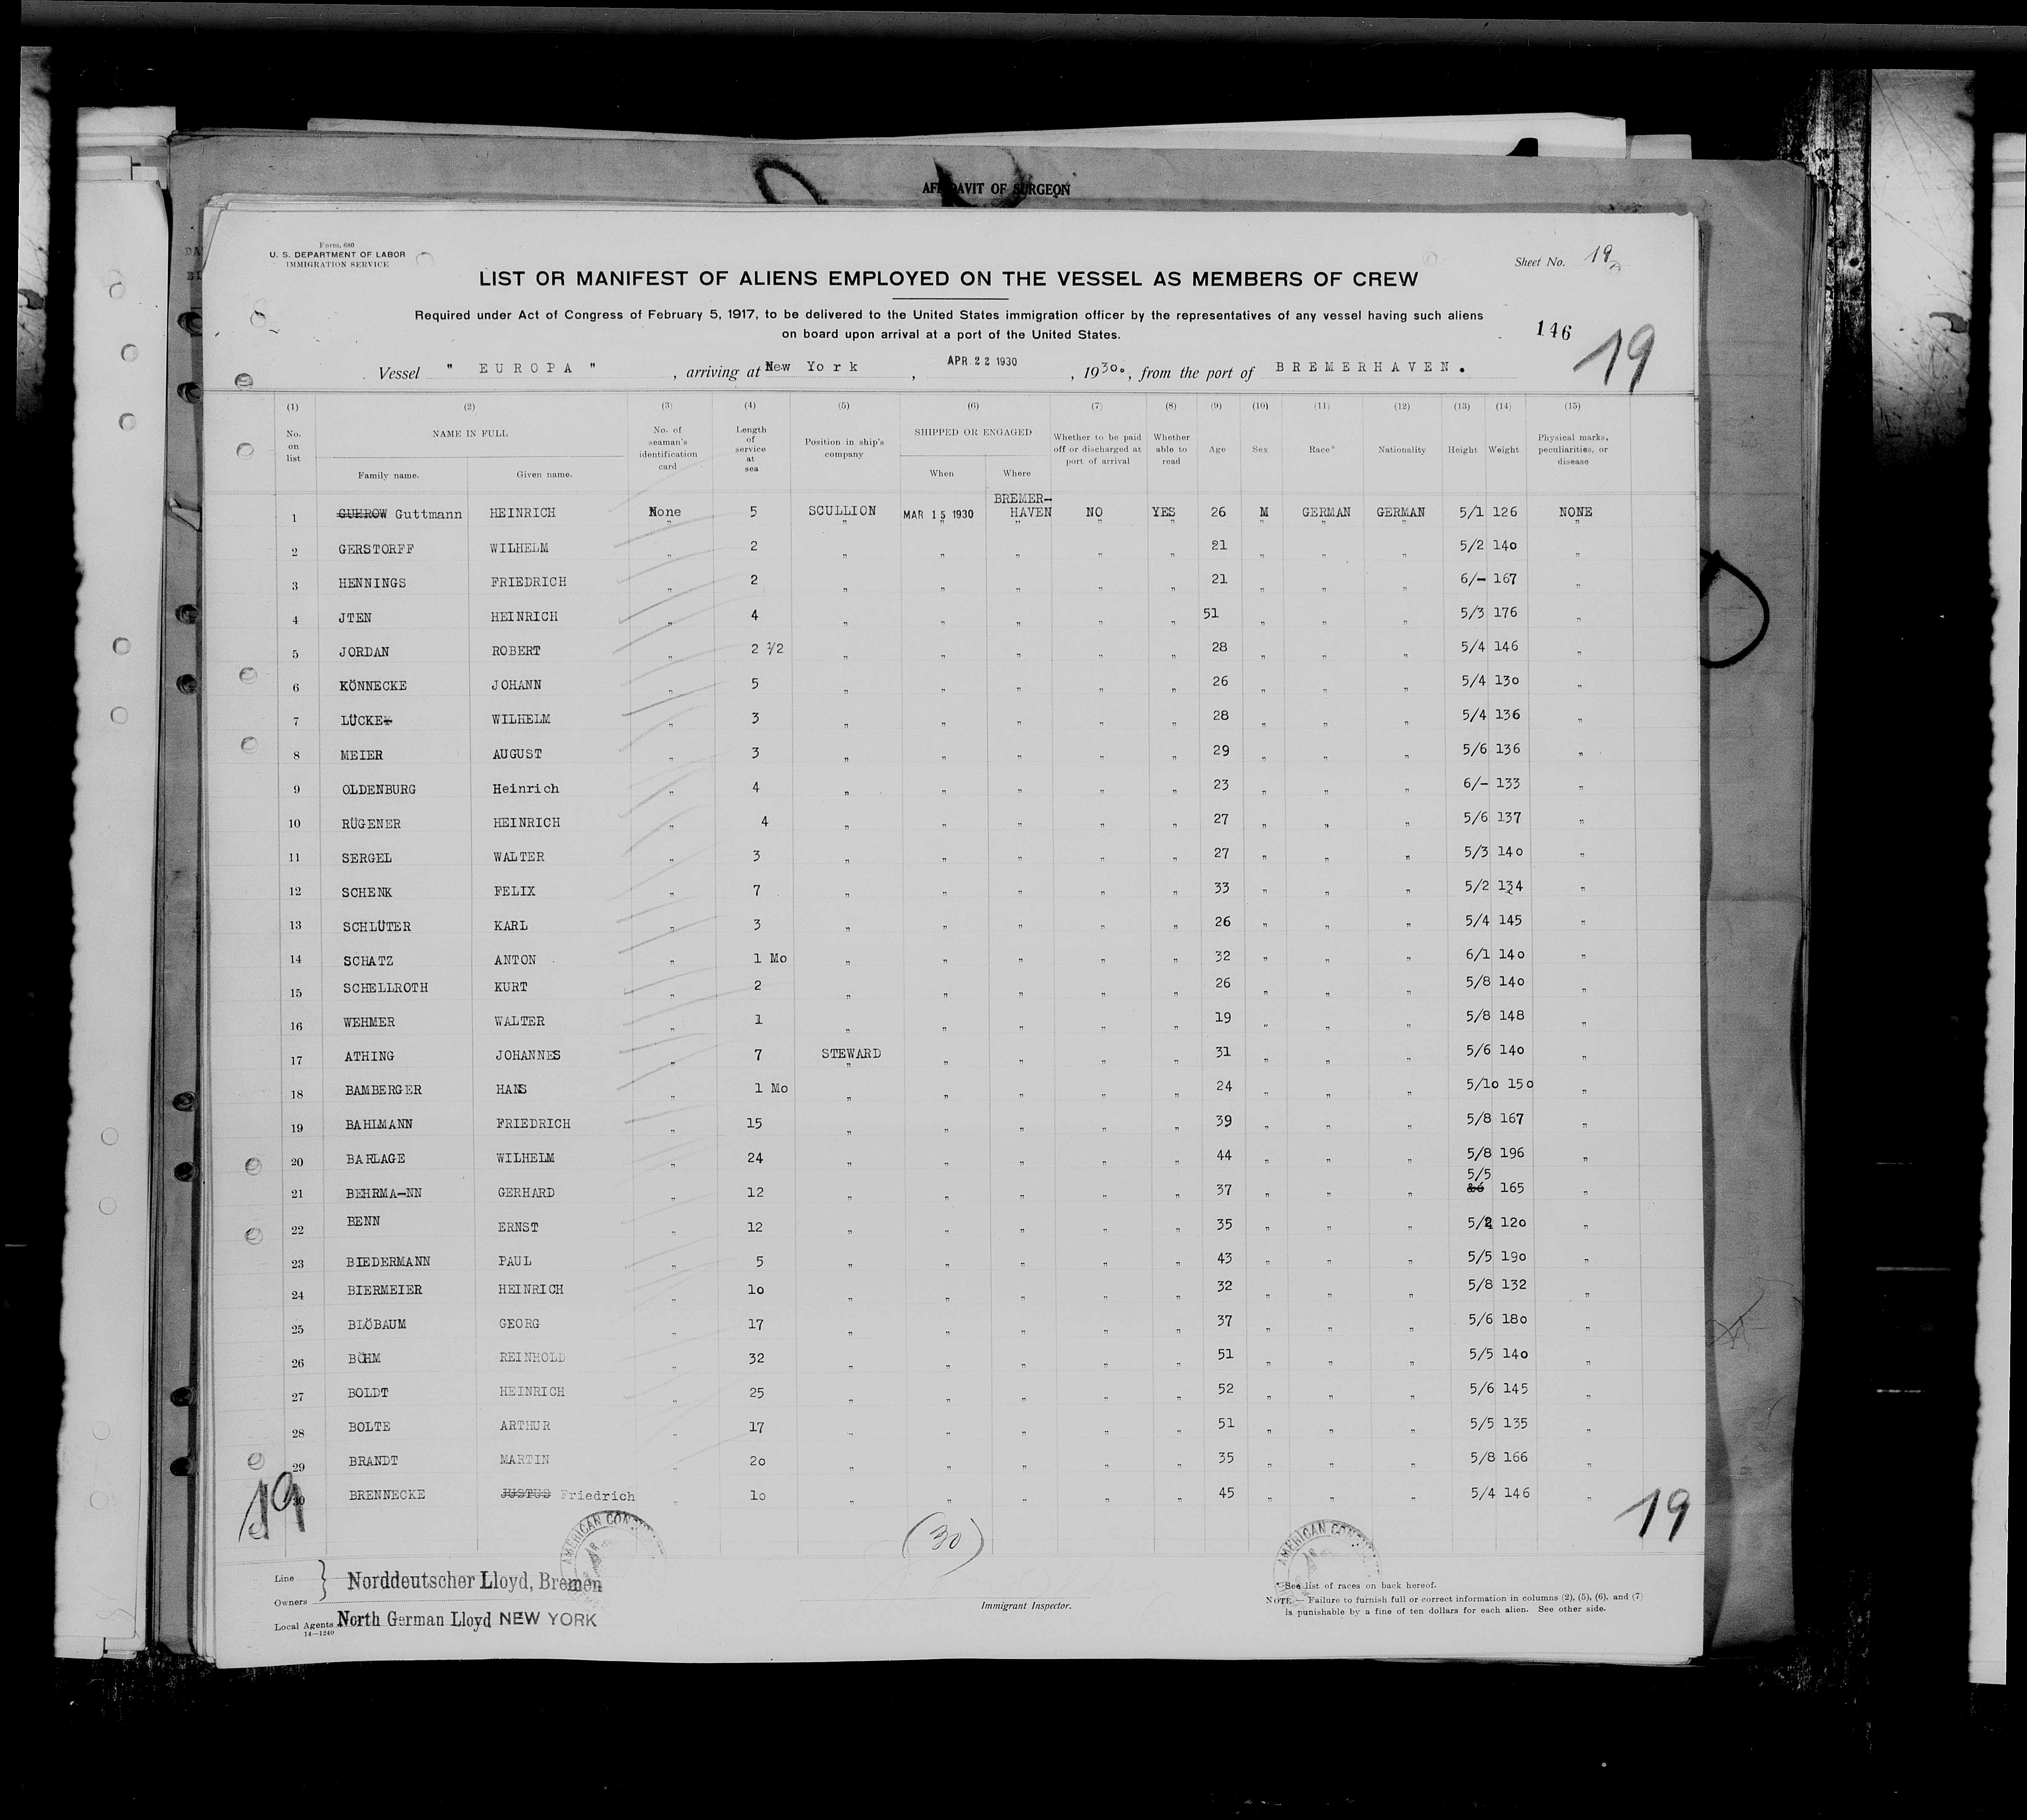 AFFIDAVIT OF SURGEON
Form 680
U. S. DEPARTMENT OF LABOR
IMMIGRATION SERVICE
Sheet No. 19
LIST OR MANIFEST OF ALIENS EMPLOYED ON THE VESSEL AS MEMBERS OF CREW
Required under Act of Congress of February 5, 1917, to be delivered to the United States immigration officer by the representatives of any vessel having such aliens
on board upon arrival at a port of the United States.
146
19
Vessel " EUROPA " , arriving at New York , APR 22 1930 , 1930. , from the port of BREMERHAVEN.
(1) (2) (3) (4) (5) (6) (7) (8) (9) (10) (11) (12) (13) (14) (15)
No. on list NAME IN FULL Family name. Given name. No. of seaman's identification card Length of service at sea Position in ship's company SHIPPED OR ENGAGED When Where Whether to be paid off or discharged at port of arrival Whether able to read Age Sex Race* Nationality Height Weight Physical marks, peculiarities, or disease
1 GUHROW Guttmann HEINRICH None 5 SCULLION MAR 15 1930 BREMER-HAVEN NO YES 26 M GERMAN GERMAN 5/1 126 NONE
2 GERSTORFF WILHELM " 2 " " " " " 21 " " " 5/2 140 "
3 HENNINGS FRIEDRICH " 2 " " " " " 21 " " " 6/- 167 "
4 JTEN HEINRICH " 4 " " " " " 51 " " " 5/3 176 "
5 JORDAN ROBERT " 2 1/2 " " " " " 28 " " " 5/4 146 "
6 KÖNNECKE JOHANN " 5 " " " " " 26 " " " 5/4 130 "
7 LÜCKE WILHELM " 3 " " " " " 28 " " " 5/4 136 "
8 MEIER AUGUST " 3 " " " " " 29 " " " 5/6 136 "
9 OLDENBURG Heinrich " 4 " " " " " 23 " " " 6/- 133 "
10 RÜGENER HEINRICH " 4 " " " " " 27 " " " 5/6 137 "
11 SERGEL WALTER " 3 " " " " " 27 " " " 5/3 140 "
12 SCHENK FELIX " 7 " " " " " 33 " " " 5/2 134 "
13 SCHLÜTER KARL " 3 " " " " " 26 " " " 5/4 145 "
14 SCHATZ ANTON " 1 Mo " " " " " 32 " " " 6/1 140 "
15 SCHELLROTH KURT " 2 " " " " " 26 " " " 5/8 140 "
16 WEHMER WALTER " 1 " " " " " 19 " " " 5/8 148 "
17 ATHING JOHANNES " 7 STEWARD " " " " 31 " " " 5/6 140 "
18 BAMBERGER HANS " 1 Mo " " " " " 24 " " " 5/10 150 "
19 BAHLMANN FRIEDRICH " 15 " " " " " 39 " " " 5/8 167 "
20 BARLAGE WILHELM " 24 " " " " " 44 " " " 5/8 196 "
21 BEHRMA-NN GERHARD " 12 " " " " " 37 " " " 5/5 165 "
22 BENN ERNST " 12 " " " " " 35 " " " 5/2 120 "
23 BIEDERMANN PAUL " 5 " " " " " 43 " " " 5/5 190 "
24 BIERMEIER HEINRICH " 10 " " " " " 32 " " " 5/8 132 "
25 BLÖBAUM GEORG " 17 " " " " " 37 " " " 5/6 180 "
26 BÖHM REINHOLD " 32 " " " " " 51 " " " 5/5 140 "
27 BOLDT HEINRICH " 25 " " " " " 52 " " " 5/6 145 "
28 BOLTE ARTHUR " 17 " " " " " 51 " " " 5/5 135 "
29 BRANDT MARTIN " 20 " " " " " 35 " " " 5/8 166 "
30 BRENNECKE JUSTUS Friedrich " 10 " " " " " 45 " " " 5/4 146 "
19 (30) 19
AMERICAN AMERICAN
Line
Owners
Norddeutscher Lloyd, Bremen
Local Agents North German Lloyd NEW YORK
14—1240
Immigrant Inspector.
* See list of races on back hereof.
NOTE.—Failure to furnish full or correct information in columns (2), (5), (6), and (7)
is punishable by a fine of ten dollars for each alien. See other side.